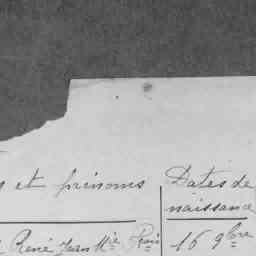 et prénoms
Dates de
naissance
René Jean Mie
16 9bre